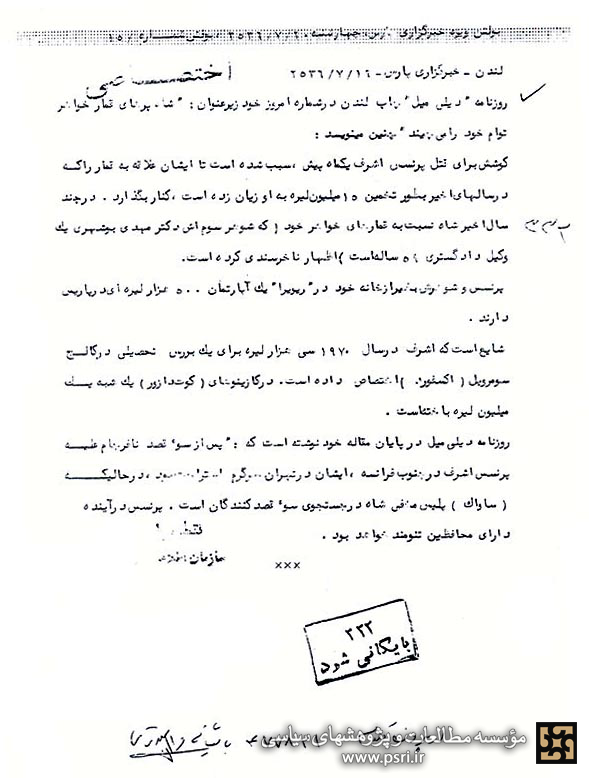 بولتن ویژه خبرگزاری پارس، چهارشنبه ۲۵۳۶/۷/۲۰، بولتن شماره ۱۵۰
اختصاصی
لندن - خبرگزاری پارس - ۲۵۳۶/۷/۱۶
روزنامه "دیلی میل" چاپ لندن در شماره امروز خود زیر عنوان : "شاه بر نای قمار خواهر
توام خود را می بیند" چنین مینویسد :
کوشش برای قتل پرنسس اشرف یکماه پیش ، سبب شده است تا ایشان علاقه به قمار را که
در سالهای اخیر بطور تخمین ۱۵ میلیون لیره به او زیان زده است ، کنار بگذارد . در چند
سال اخیر شاه نسبت به قمارهای خواهر خود ( که شوهر سوم اش دکتر مهدی بوشهری یک
وکیل دادگستری ۵۸ ساله است ) اظهار ناخرسندی کرده است.
پرنسس و شوهرش بغیر از خانه خود در "ریویرا" یک آپارتمان ۵۰۰ هزار لیره ای در پاریس
دارند .
شایع است که اشرف در سال ۱۹۷۰ سی هزار لیره برای یک بورس تحصیلی در کالج
سومرویل ( اکسفورد ) اختصاص داده است. در کازینوهای ( کوت دازور ) یک شبه یک
میلیون لیره باخته است .
روزنامه دیلی میل در پایان مقاله خود نوشته است که : "پس از سو' قصد نافرجام علیه
پرنسس اشرف در جنوب فرانسه ، ایشان در تهران سرگرم استراحتند ، در حالیکه
( ساواک ) پلیس مخفی شاه در جستجوی سو' قصد کنندگان است . پرنسس در آینده
دارای محافظین تنومند خواهد بود .
سازمان
×××
۳۳۲
بایگانی شود
مؤسسه مطالعات و پژوهشهای سیاسی
www.psri.ir